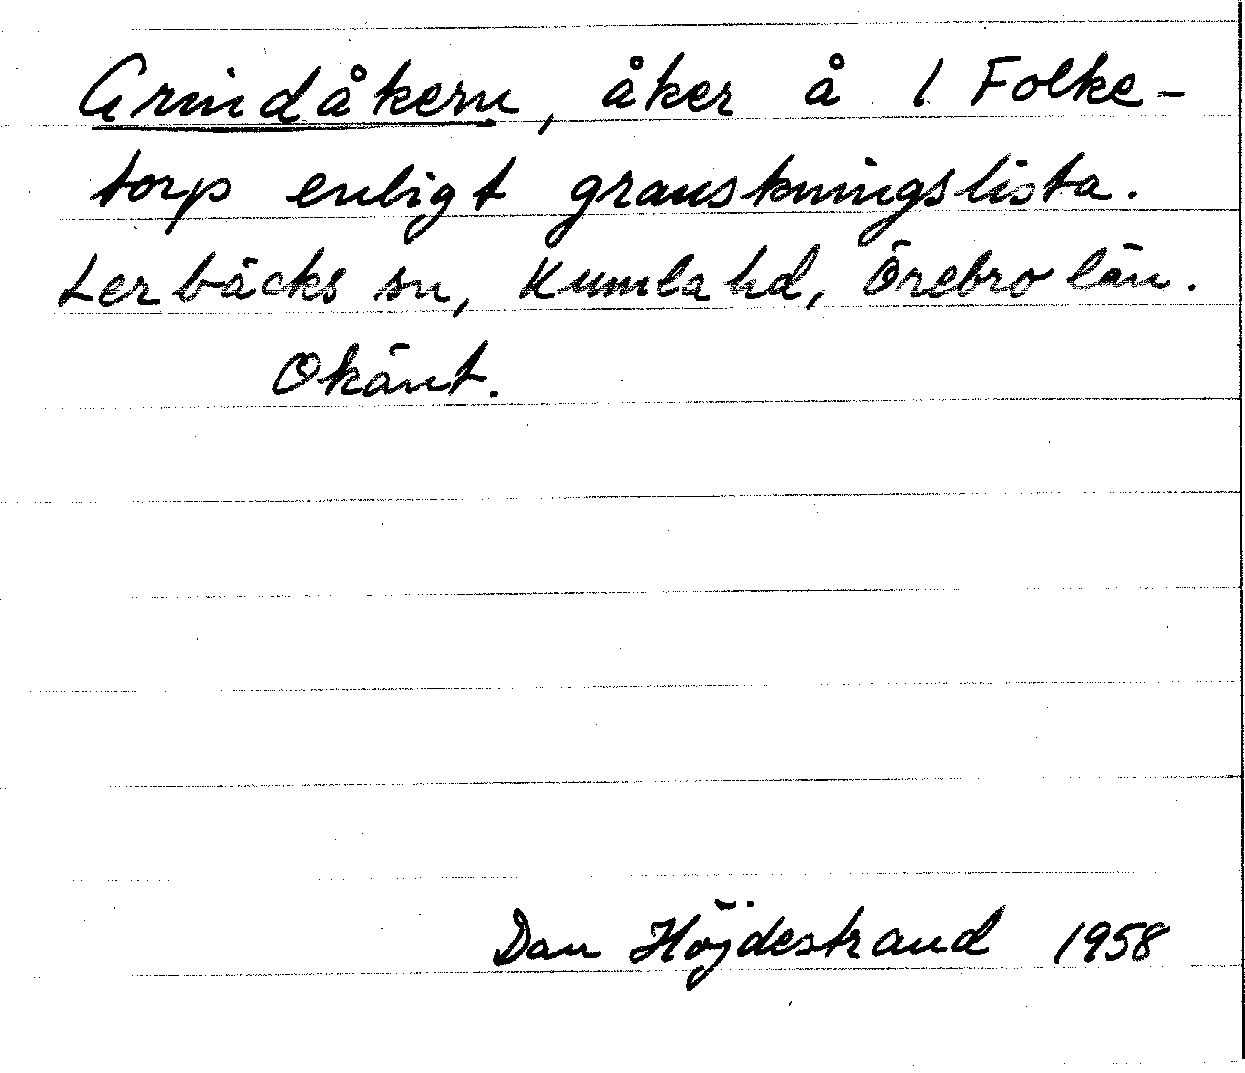 Grindåkern, åker å 1 Folke-
torp enligt granskningslista.
Lerbäcks sn, Kumla hd, Örebro län.
Okänt.
Dan Höjdestrand 1958